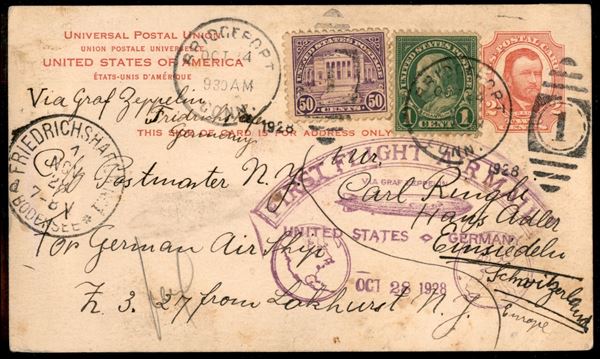 UNIVERSAL POSTAL UNION
UNION POSTALE UNIVERSELLE
UNITED STATES OF AMERICA
ÉTATS-UNIS D'AMÉRIQUE
THIS SIDE OF CARD IS FOR ADDRESS ONLY
BRIDGEPORT
OCT 24
9 30 AM
CONN.
1928
UNITED STATES POSTAGE
50 CENTS 50
1 CENT 1
BRIDGEPORT
CONN.
1928
U.S. POSTAL CARD
1
Via Graf Zeppelin
Friedrichshafen
Germany
FRIEDRICHSHAFEN
BODENSEE
To Postmaster N.Y.
for German Air Ship
L Z 127 from Lakhurst N.J.
Carl Ringli
Haus Adler
Einsiedeln
Schwitzerland
Europe
FIRST FLIGHT AIR MAIL
VIA GRAF ZEPPELIN
UNITED STATES GERMANY
OCT 28 1928